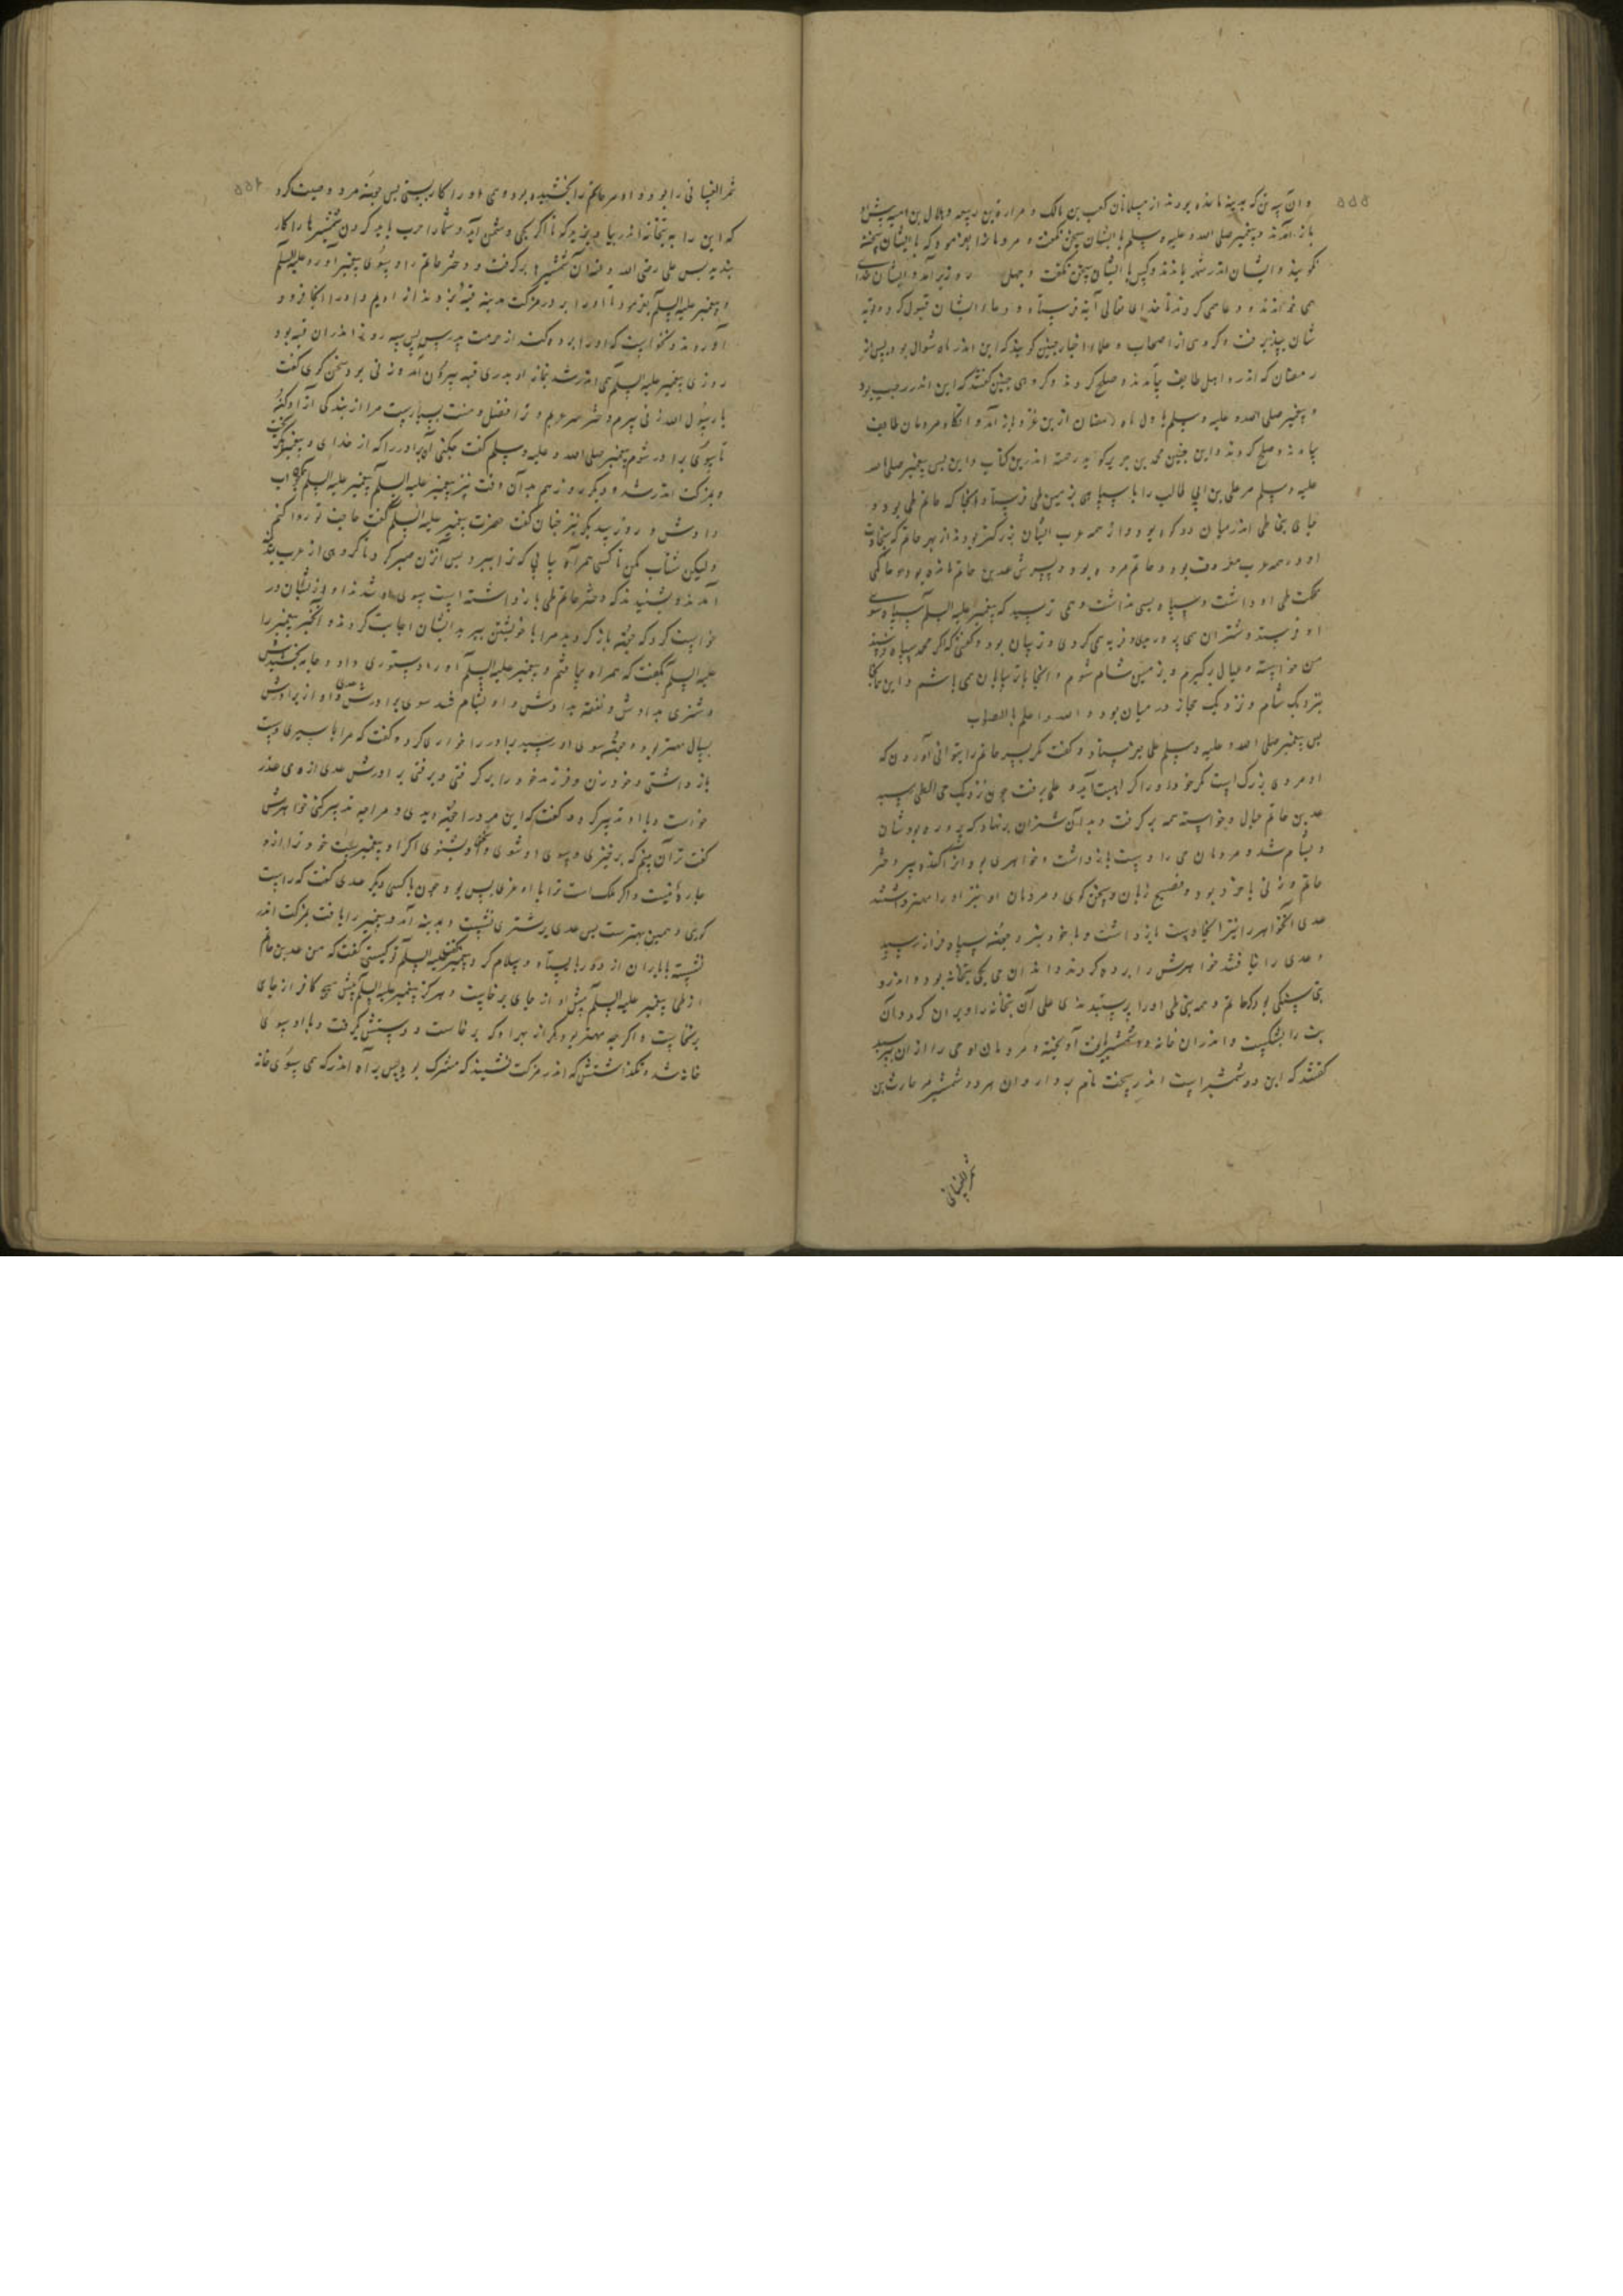 ۵۵۵
و آن سه تن که بمدینه مانده بودند از مسلمانان کعب بن مالک و مرارة بن ربیعه و هلال بن امیه پیش او
باز آمدند و پیغمبر صلی الله و علیه و سلم با ایشان سخن نگفت و مردمانرا بفرمود که با ایشان سخن
نگویند و ایشان اندر شهر بماندند و کس با ایشان سخن نگفت و چهل روز برآمد و ایشان خدا
همی خواندند و دعا همی کردند تا خدای تعالی آیة فرستاد و دعاء ایشان قبول کرد و توبه
شان بپذیرفت و کروهی از اصحاب و علماء اخبار چنین کویند که این اندر ماه شوال بود پس از
رمضان که اندرو اهل طایف بیامدند و صلح کردند و کروهی چنین گفتند که این اندر رجب بود
و پیغمبر صلی الله و علیه و سلم باول ماه رمضان ازین غزو باز آمد و آنکاه مردمان طایف
بیامدند و صلح کردند و این چنین محمد بن جریر کوید رحمه اندرین کتاب و ازین پس پیغمبر صلی الله
علیه و سلم مر علی بن ابی طالب را با سپاهی بزمین طی فرستاد و آنجا که حاتم طی بود و
جای بنی طی اندر میان دو کوه بود و از همه عرب ایشان بزرکتر بودند از بهر حاتم که سخاوت
او در همه عرب معروف بود و حاتم مرده بود و پسرش عدی بن حاتم مانده بود و حاکمی
مملکت طی او داشت و سپاه بسی نداشت و همی ترسید که پیغمبر علیه السلم سپاه سوی
او فرستد و شتران می پرورید و فربه می کردی و ترسان بود و گفتی که اکر محمد سپاه فرستد
من خواسته و عیال برگیرم و بزمین شام شوم و آنجا با ترسایان می باشم و این جایگاه
نزدیک شام و نزدیک حجاز در میان بود و الله و اعلم بالصواب
پس پیغمبر صلی الله و علیه و سلم علی بفرستاد و گفت مگر پسر حاتم را بتوانی آوردن که
او مردی بزرگ است مگر خود او را اندر بیت آید و علی برفت چون نزدیک حی الطی رسید
عدی بن حاتم عیال و خواسته همه برگرفت و بدان شتران برنهاد که پرورده بودشان
و بشام شد و مردمان حی را دست بازداشت و خواهری بود او را کنده پیر دختر
حاتم و زنی با خرد بود و فصیح زبان و سخن گوی و مردمان او نیز او را مهتر داشتند
عدی آن خواهر را نیز آنجا دست بازداشت و با خود نبرد و چون سپاه فراز رسید
و عدی را نیافتند خواهرش را برده کردند و اندران حی یکی بتخانه بود و اندرو
بتی سنگی بود که حاتم و همه بنی طی او را پرستیدندی علی آن بتخانه را ویران کرد و آن
بت را بشکست و اندران خانه دو شمشیر یافت آویخته و مردمان او حی را از آن بپرسید
گفتند که این دو شمشیر است اندر سخت نام بردار و آن هر دو شمشیر مر حارث بن
شمر الغسانی
۵۵۶
شمر الغسانی را بود و او مر حاتم را بخشیده بود و همی او را کار بستی پس چون بمرد وصیت کرد
که این را به بتخانه اندر بیاویزید کو تا اگر یکی دشمن آید و شما را حرب باید کردن شمشیرها را کار
بندید پس علی رضی الله و عنه آن شمشیرها برگرفت و دختر حاتم را و بسوی پیغمبر آورد علیه السلم
و پیغمبر علیه السلم بفرمود تا او را بر در مزکت مدینه قبه بزدند از ادیم و او را آنجا فرود
آوردند و نخواست که او را برده کند از حرمت پدرش پس سه روز اندران قبه بود
روزی پیغمبر علیه السلم همی اندر شد بنماز او بدر قبه بیرون آمد و زنی بود سخن گوی گفت
یا رسول الله زنی پیرم و دختر مهترم و ترا فضل و منت بسیارست مرا از بندگی آزاد کن
تا بسوی برادر شوم پیغمبر صلی الله و علیه و سلم گفت چکنی آن برادر را که از خدای و پیغمبر بگریخت
و بمزکت اندر شد و دیگر روز هم بدان وقت نیز پیغمبر علیه السلم پیغمبر علیه السلم همچنان جواب
دادش و روز سدیگر نیز چنان گفت حضرت پیغمبر علیه السلم گفت حاجت تو روا کنم
ولیکن شتاب مکن تا کسی همراه بیابی که ترا ببرد پس آن زن صبر کرد تا گروهی از عرب بمدینه
آمدند و بشنیدند که دختر حاتم طی بازداشته است بسوی او شدند او از ایشان در
خواست کرد که چون بازگردید مرا با خویشتن ببرید ایشان اجابت کردند و آن خبر پیغمبر را
علیه السلم بگفت که همراه یافتم و پیغمبر علیه السلم او را دستوری داد و جامه بخشیدش
و شتری بدادش و نفقه بدادش و او بشام شد سوی برادرش عدی و او از برادرش
بسال مهتر بود و چون سوی او رسید برادر را خواری کرد و گفت که مرا باسیری دست
بازداشتی و خود زن و فرزند خود را برگرفتی و برفتی برادرش عدی از وی عذر
خواست و با او تدبیر کرد و گفت که این مرد را چون دیدی و مرا چه تدبیر کنی خواهرش
گفت ترا آن بینم که برخیزی و بسوی او شوی و سخن او بشنوی اگر او پیغمبرست خود ترا از او
چاره نیست و اگر ملک است ترا با او عز بس بود چون با کسی دیگر عدی گفت که راست
گویی و همین بهترست پس عدی بر شتری نشست و بمدینه آمد و پیغمبر را یافت بمزکت اندر
نشسته با یاران از دور بایستاد و سلام کرد پیغمبر علیه السلم تو کیستی گفت که من عدی بن حاتم
از طی پیغمبر علیه السلم پیش او از جای برخاست و هرگز پیغمبر علیه السلم پیش هیچ کافر از جای
برنخاست و اگر چه مهتر بود مگر از بهر او که برخاست و دستش گرفت و با او بسوی
خانه شد و نگذاشتش که اندر مزکت نشیند که مشرک بود پس براه اندر که همی بسوی خانه